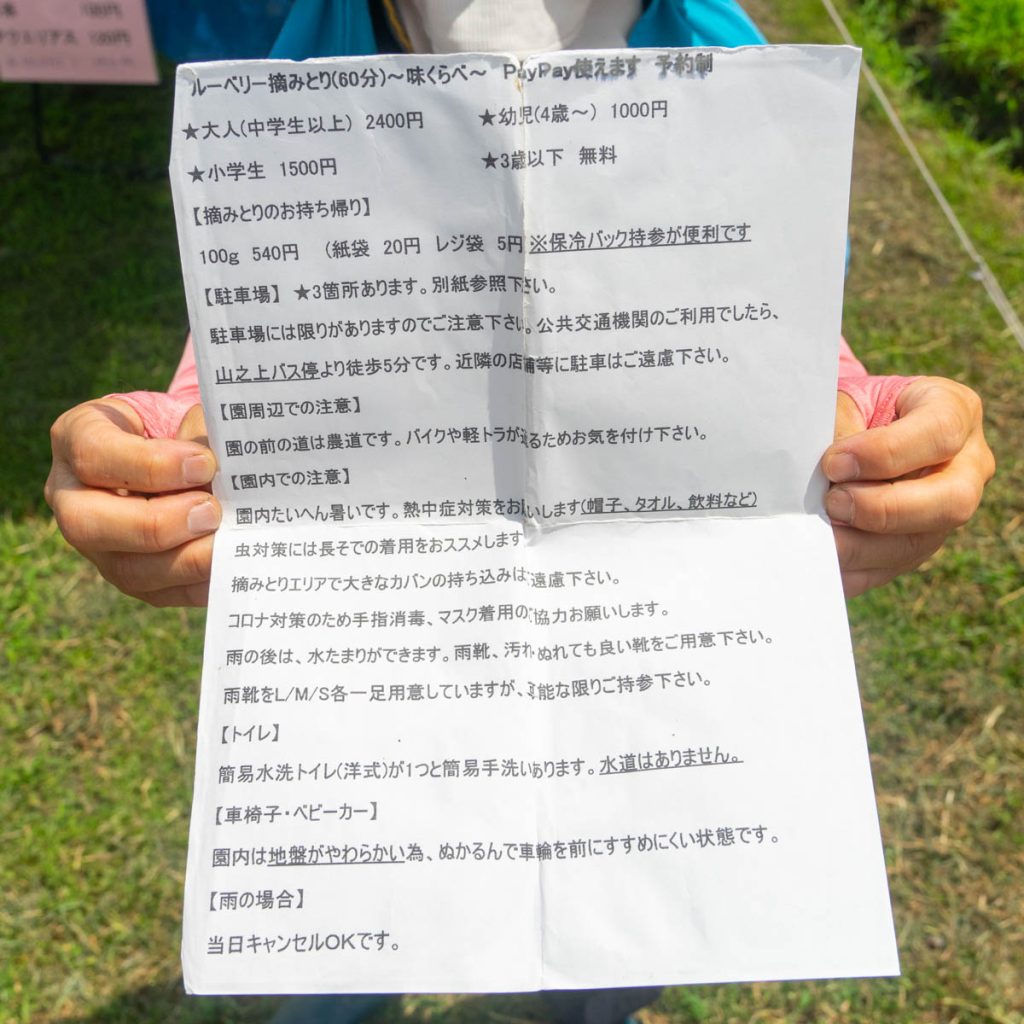 100円
100円
ルーベリー摘みとり(60分)～味くらべ～ PayPay使えます 予約制
★大人(中学生以上) 2400円 ★幼児(4歳～) 1000円
★小学生 1500円 ★3歳以下 無料
【摘みとりのお持ち帰り】
100g 540円 (紙袋 20円 レジ袋 5円 ※保冷バック持参が便利です
【駐車場】 ★3箇所あります。別紙参照下さい。
駐車場には限りがありますのでご注意下さい。公共交通機関のご利用でしたら、
山之上バス停より徒歩5分です。近隣の店舗等に駐車はご遠慮下さい。
【園周辺での注意】
園の前の道は農道です。バイクや軽トラが通るためお気を付け下さい。
【園内での注意】
園内たいへん暑いです。熱中症対策をお願いします(帽子、タオル、飲料など)
虫対策には長そでの着用をおススメします
摘みとりエリアで大きなカバンの持ち込みはご遠慮下さい。
コロナ対策のため手指消毒、マスク着用のご協力お願いします。
雨の後は、水たまりができます。雨靴、汚れぬれても良い靴をご用意下さい。
雨靴をL/M/S各一足用意していますが、可能な限りご持参下さい。
【トイレ】
簡易水洗トイレ(洋式)が1つと簡易手洗いあります。水道はありません。
【車椅子・ベビーカー】
園内は地盤がやわらかい為、ぬかるんで車輪を前にすすめにくい状態です。
【雨の場合】
当日キャンセルOKです。